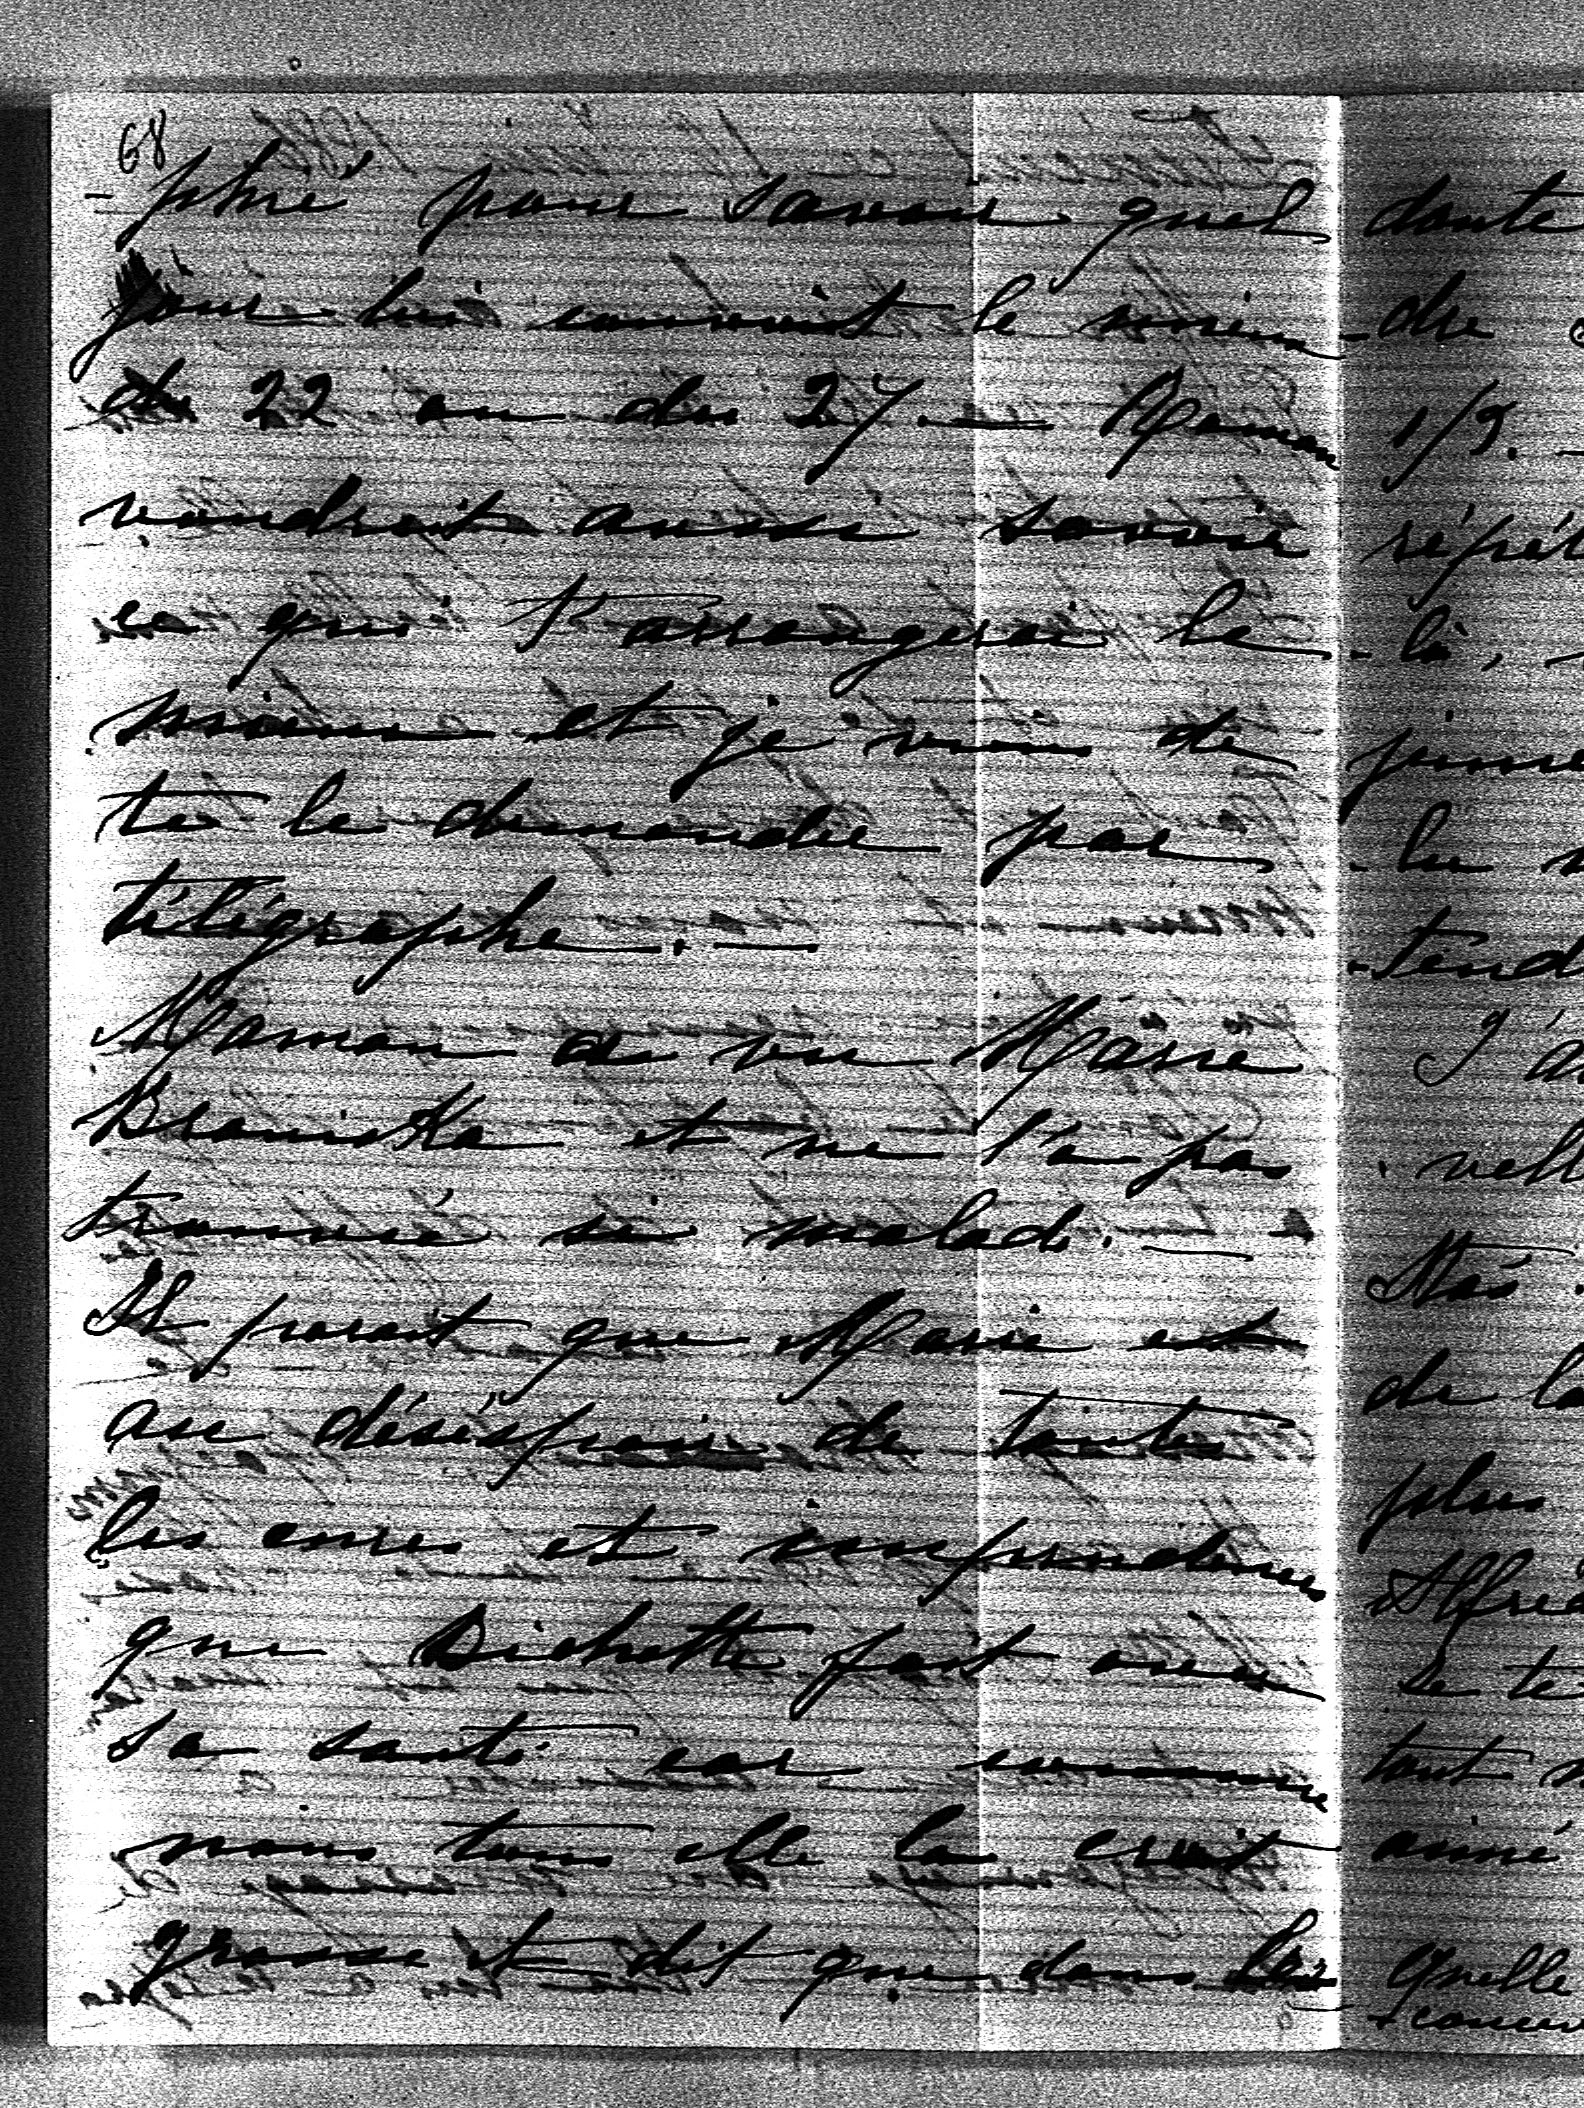 68
-phié pour savoir quel
jour lui convient le mieux
du 22 ou du 27. — Maman
voudrait aussi savoir
ce qui t'arrangerai le
mieux et je viens de
te le demander par
télégraphe. —
Maman a vu Marie
Branicka et ne l'a pas
trouvée si malade. —
Il parait que Marie est
au déséspoir de toutes
les cures et imprudences
que Bichette fait avec
sa santé car comme
nous tous elle la croit
grosse et dit que dans
doute
-dre
1/2. —
répét
-là,
-lu
-tend
J'a
vell
Stas
de la
plus
Alfred
se te
tout
aimé
Quelle